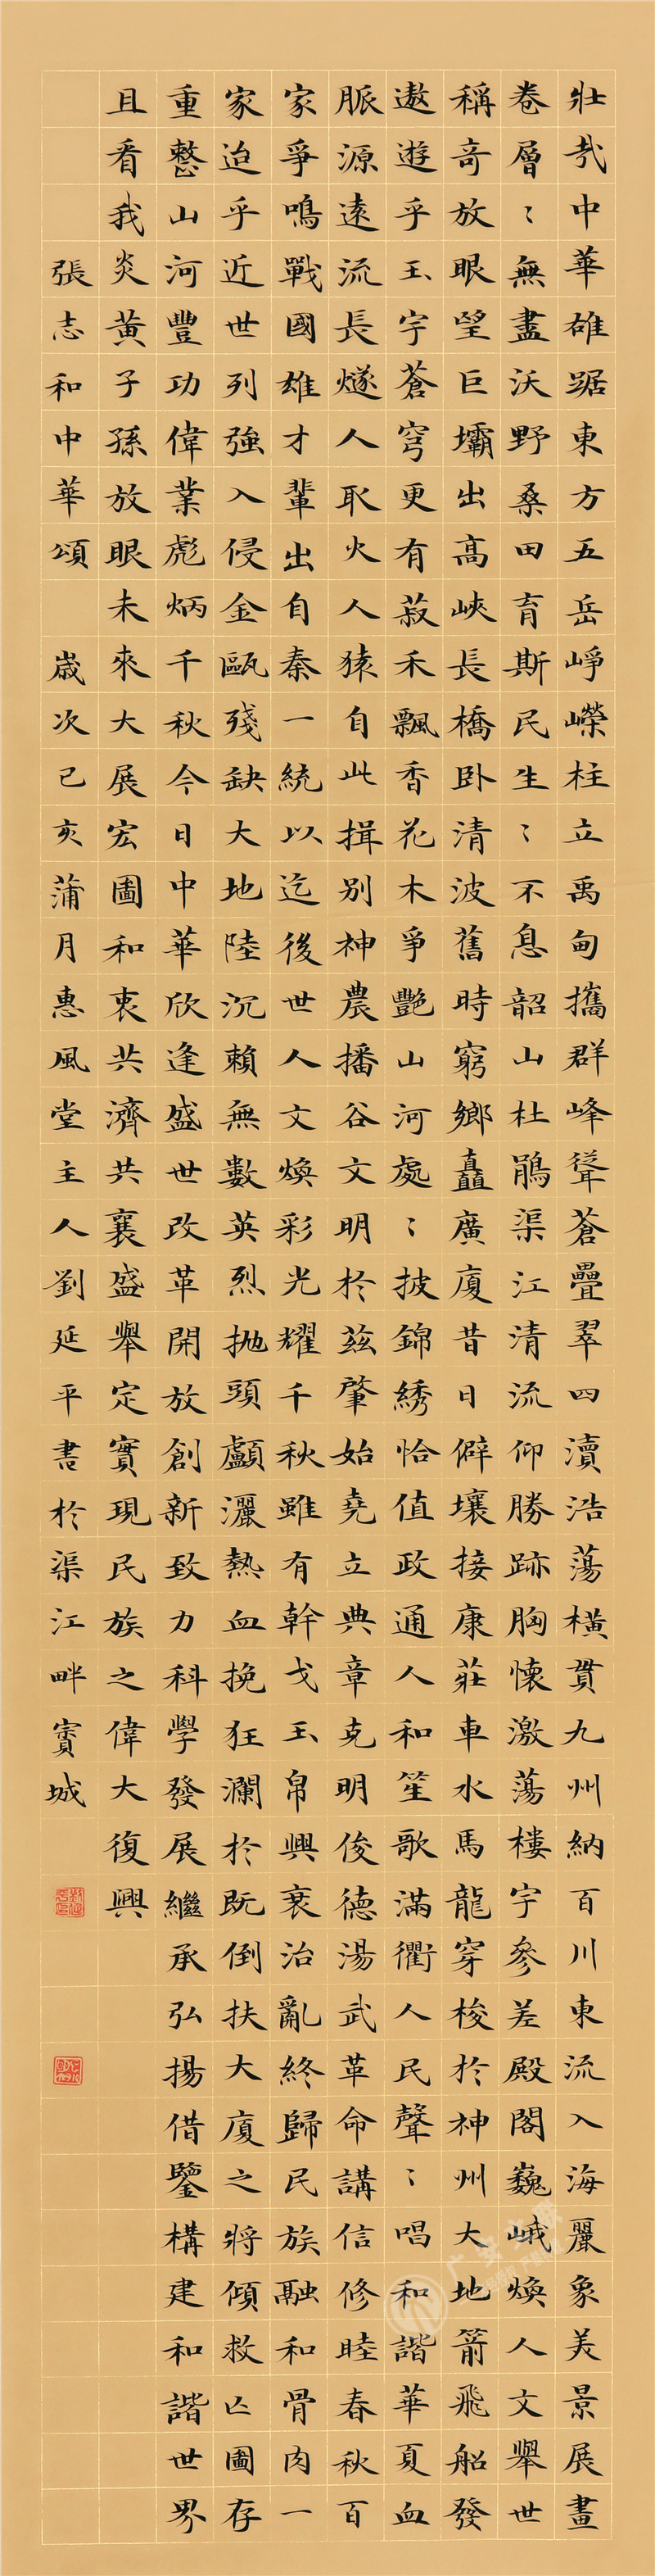 壯哉中華雄踞東方五岳崢嶸柱立禹甸攜群峰聳蒼疊翠四瀆浩蕩橫貫九州納百川東流入海麗象美景展畫
卷層〻無盡沃野桑田育斯民生〻不息韶山杜鵑渠江清流仰勝跡胸懷激蕩樓宇參差殿閣巍峨煥人文舉世
稱奇放眼望巨壩出高峽長橋卧清波舊時窮鄉矗廣廈昔日僻壤接康莊車水馬龍穿梭於神州大地箭飛船發
遨遊乎玉宇蒼穹更有菽禾飄香花木爭艷山河處〻披錦綉恰值政通人和笙歌滿衢人民聲〻唱和諧華夏血
脈源遠流長燧人取火人猿自此揖別神農播谷文明於茲肇始堯立典章克明俊德湯武革命講信修睦春秋百
家爭鳴戰國雄才輩出自秦一統以迄後世人文煥彩光耀千秋雖有幹戈玉帛興衰治亂終歸民族融和骨肉一
家迨乎近世列強入侵金甌殘缺大地陸沉賴無數英烈拋頭顱灑熱血挽狂瀾於既倒扶大廈之將傾救亡圖存
重整山河豐功偉業彪炳千秋今日中華欣逢盛世改革開放創新致力科學發展繼承弘揚借鑒構建和諧世界
且看我炎黃子孫放眼未來大展宏圖和衷共濟共襄盛舉定實現民族之偉大復興
張志和中華頌 歲次己亥蒲月惠風堂主人劉延平書於渠江畔賨城
广安文联